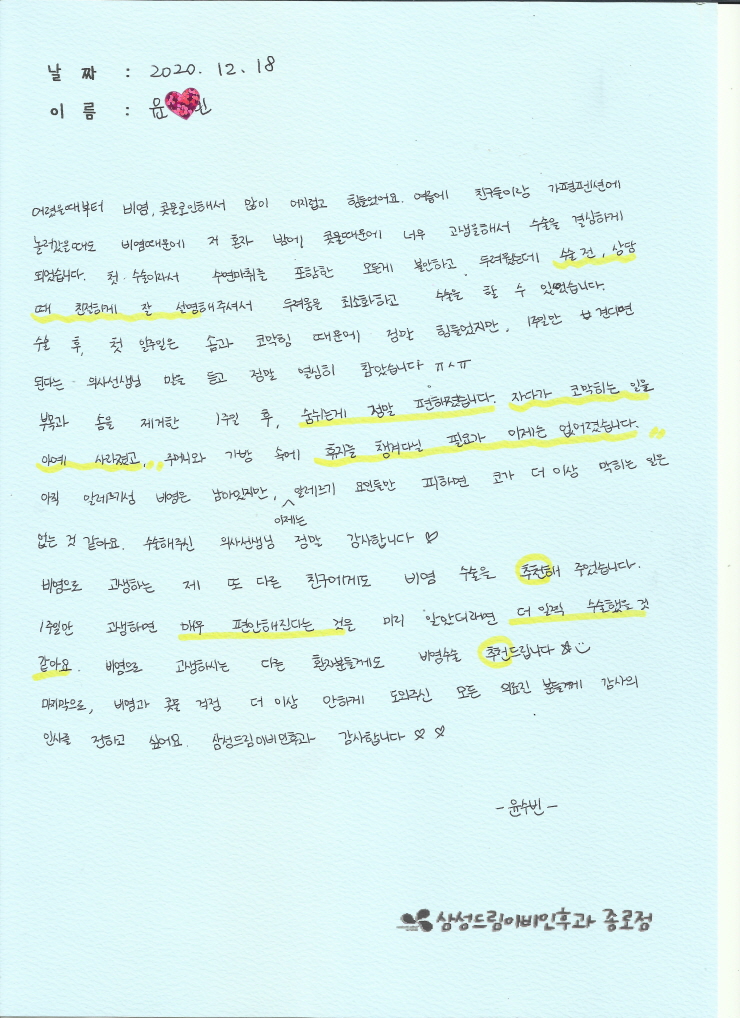 날 짜 : 2020. 12. 18
이 름 : 윤 빈
어렸을때부터 비염, 콧물로인해서 많이 어지럽고 힘들었어요. 여름에 친구들이랑 가평펜션에
놀러갔을때도 비염때문에 저 혼자 밤에 콧물때문에 너무 고생을해서 수술을 결심하게
되었습니다. 첫 수술이라서 수면마취를 포함한 모든게 불안하고, 두려웠는데 수술 전, 상담
때 친절하게 잘 설명해주셔서 두려움을 최소화하고 수술을 할 수 있었습니다.
수술 후, 첫 일주일은 솜과 코막힘 때문에 정말 힘들었지만, 1주일만 견디면
된다는 의사선생님 말을 듣고 정말 열심히 참았습니다 ㅠㅅㅠ
부목과 솜을 제거한 1주일 후, 숨쉬는게 정말 편해졌습니다. 자다가 코막히는 일은
아예 사라졌고, 주머니와 가방 속에 휴지를 챙겨다닐 필요가 이제는 없어졌습니다.
아직 알레르기성 비염은 남아있지만, 이제는 알레르기 요인들만 피하면 코가 더 이상 막히는 일은
없는 것 같아요. 수술해주신 의사선생님 정말 감사합니다 ♡
비염으로 고생하는 제 또 다른 친구에게도 비염 수술을 추천해 주었습니다.
1주일만 고생하면 매우 편안해진다는 것을 미리 알았더라면 더 일찍 수술했을 것
같아요. 비염으로 고생하시는 다른 환자분들께도 비염수술 추천드립니다 ☆
마지막으로, 비염과 콧물 걱정 더 이상 안하게 도와주신 모든 의료진 분들께 감사의
인사를 전하고 싶어요. 삼성드림이비인후과 감사합니다 ♡ ♡
- 윤수빈 -
삼성드림이비인후과 종로점